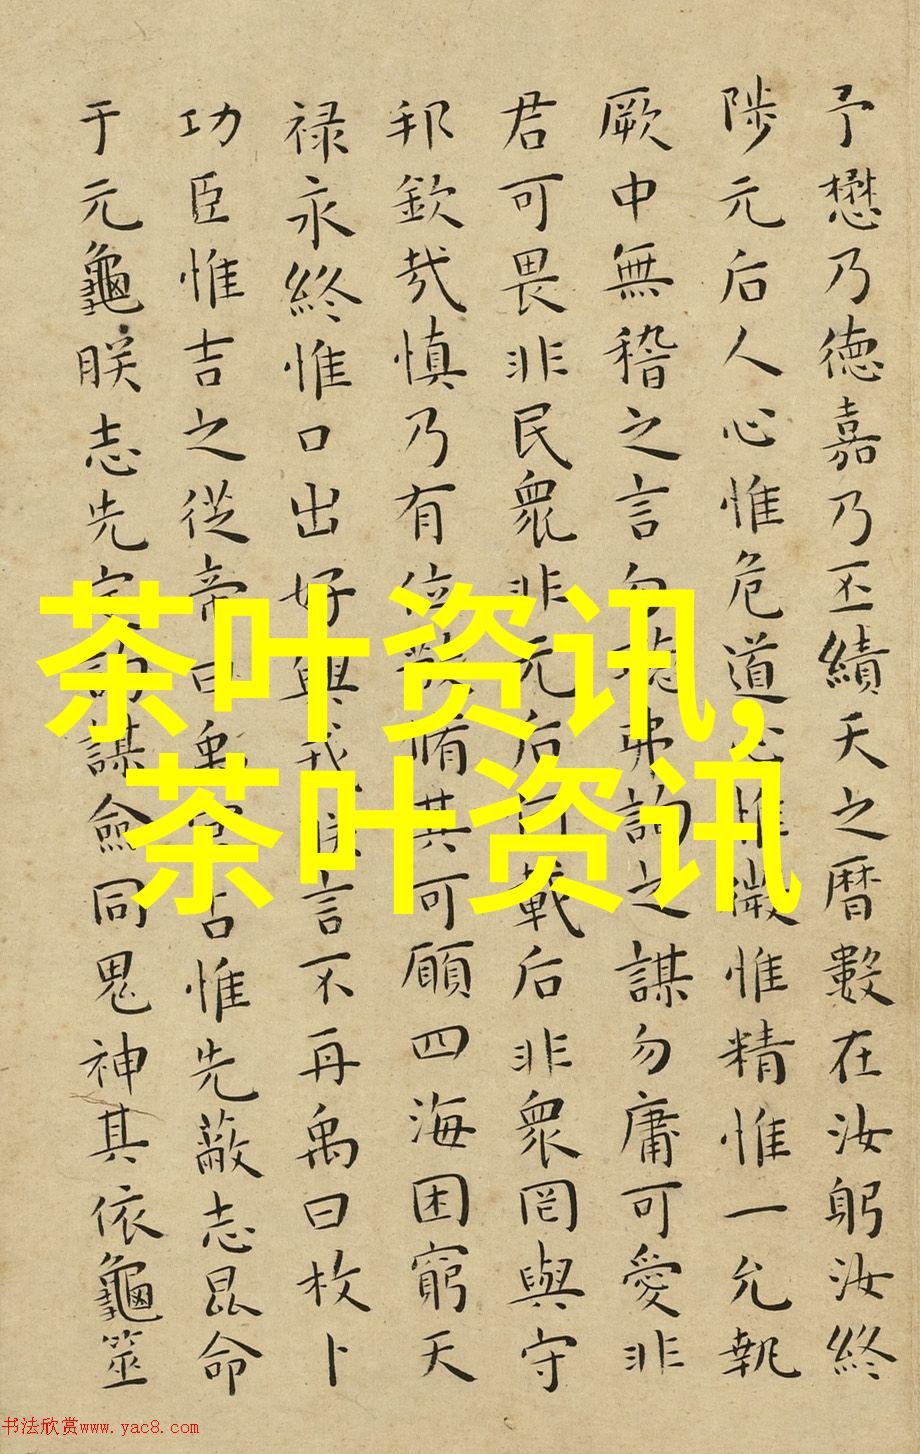 予懋乃德嘉乃丕績天之曆數在汝躬汝終
陟元后人心惟危道心惟微惟精惟一允執
厥中無稽之言勿聽弗詢之謀勿庸可愛非
君可畏非民衆非元后何戴后非衆罔與守
邦欽哉慎乃有位敬脩其可願四海困窮天
禄永終惟口出好興戎朕言不再禹曰枚卜
功臣惟吉之從帝曰禹官占惟先蔽志昆命
于元龜朕志先定詢謀僉同鬼神其依龜筮
茶叶资讯,
茶叶资讯
书法欣赏www.yac8.com